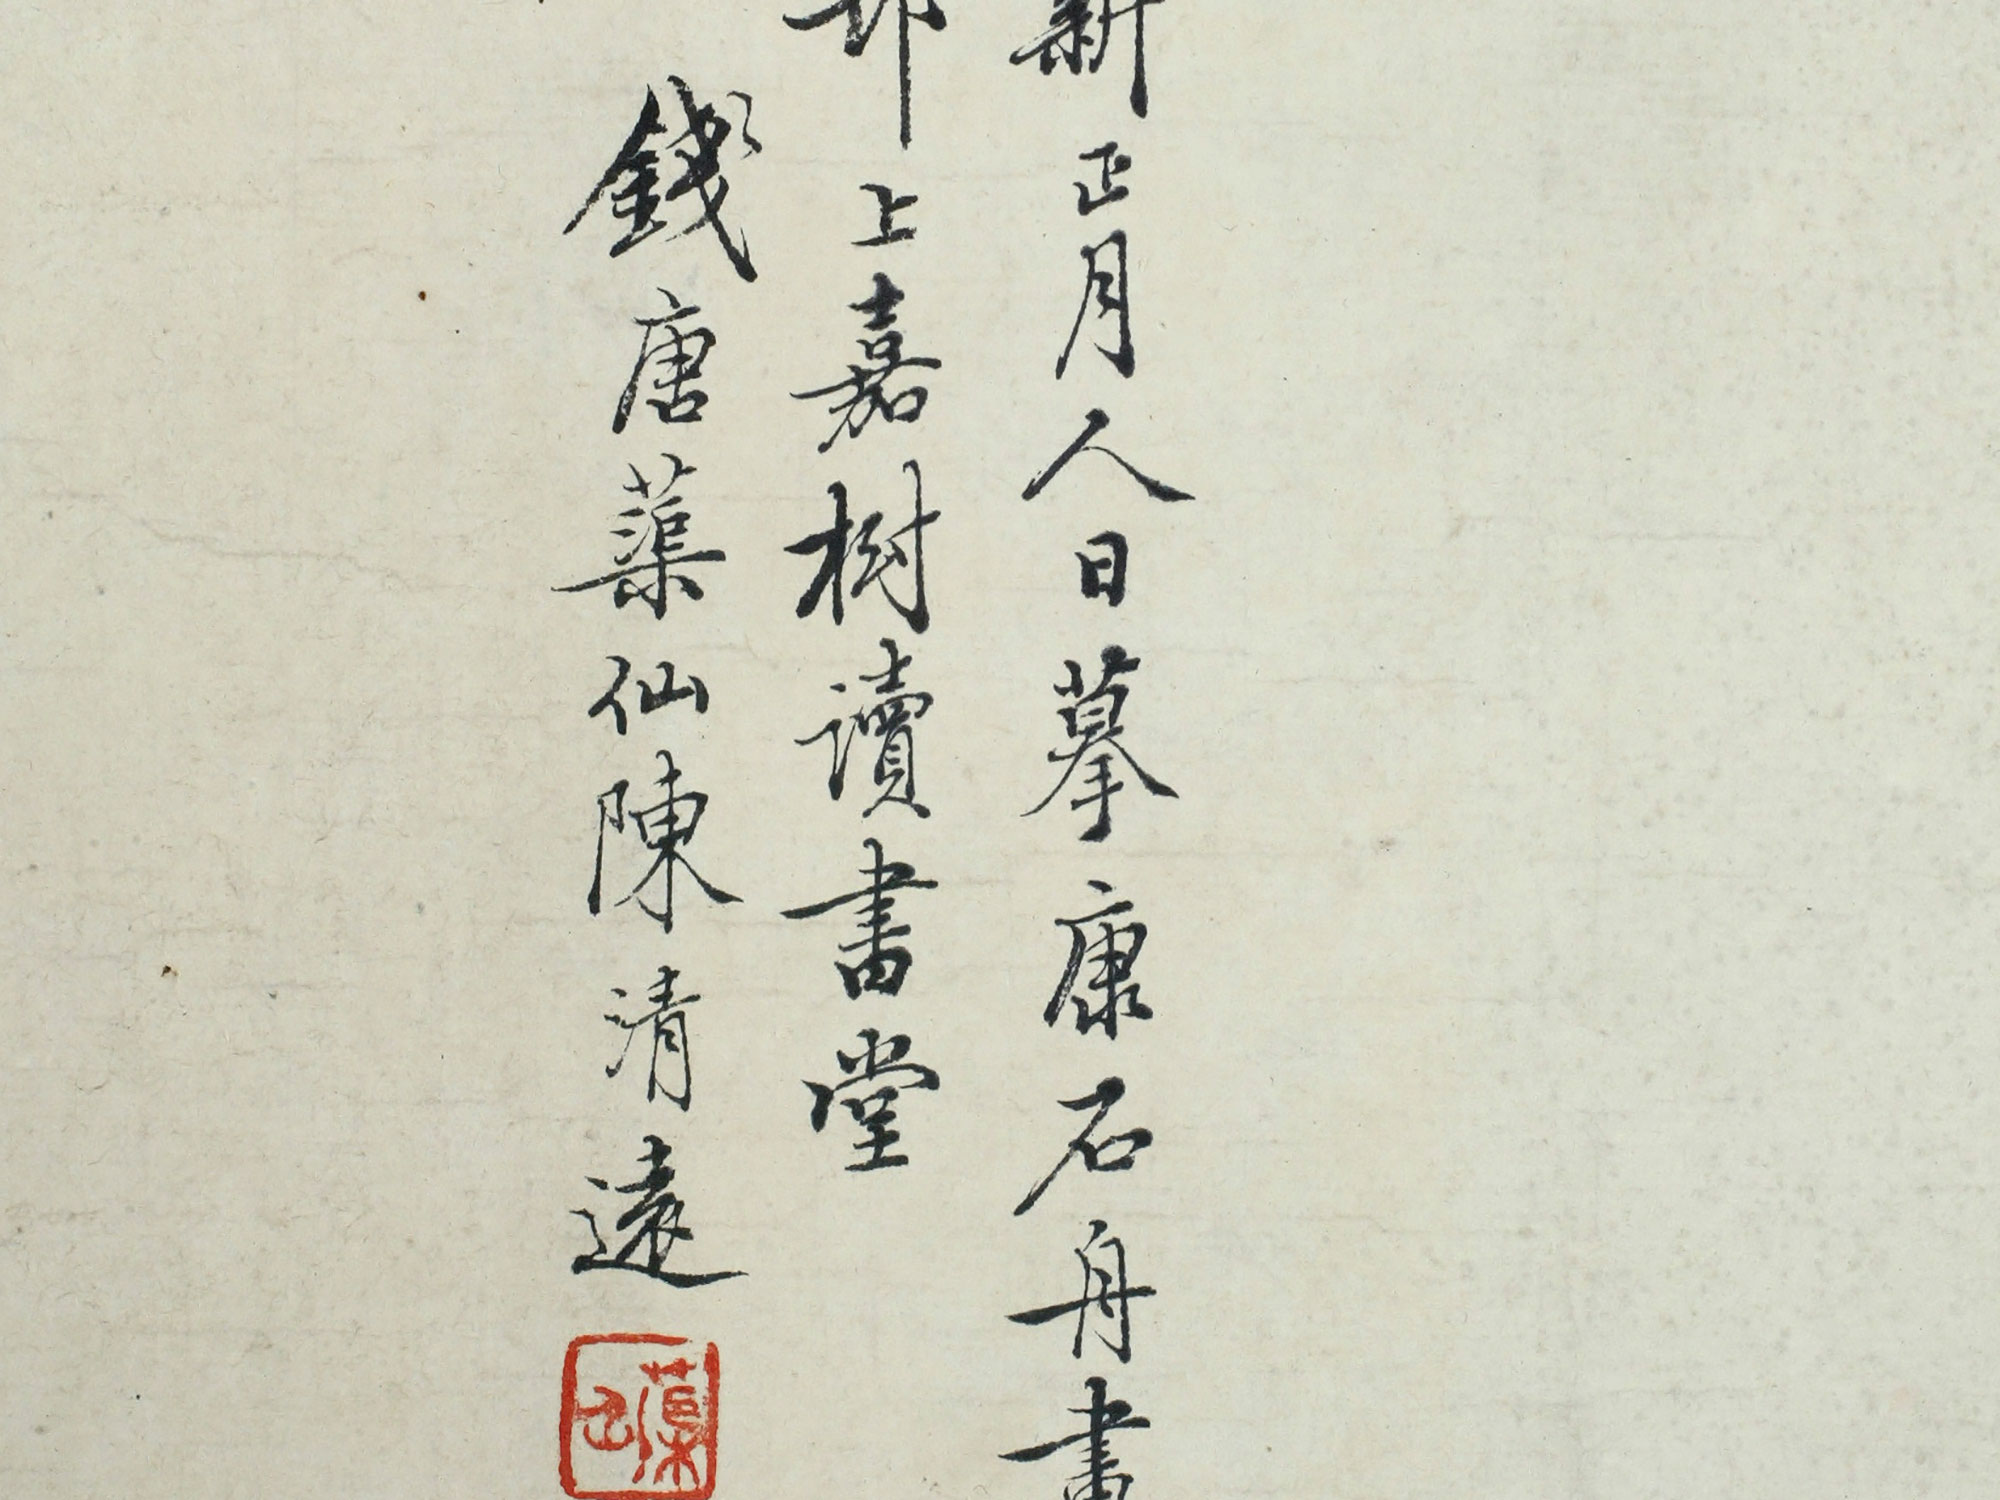 新正月人日摹康石舟畫
邗上嘉樹讀書堂
錢唐蕖仙陳清遠
蕖仙